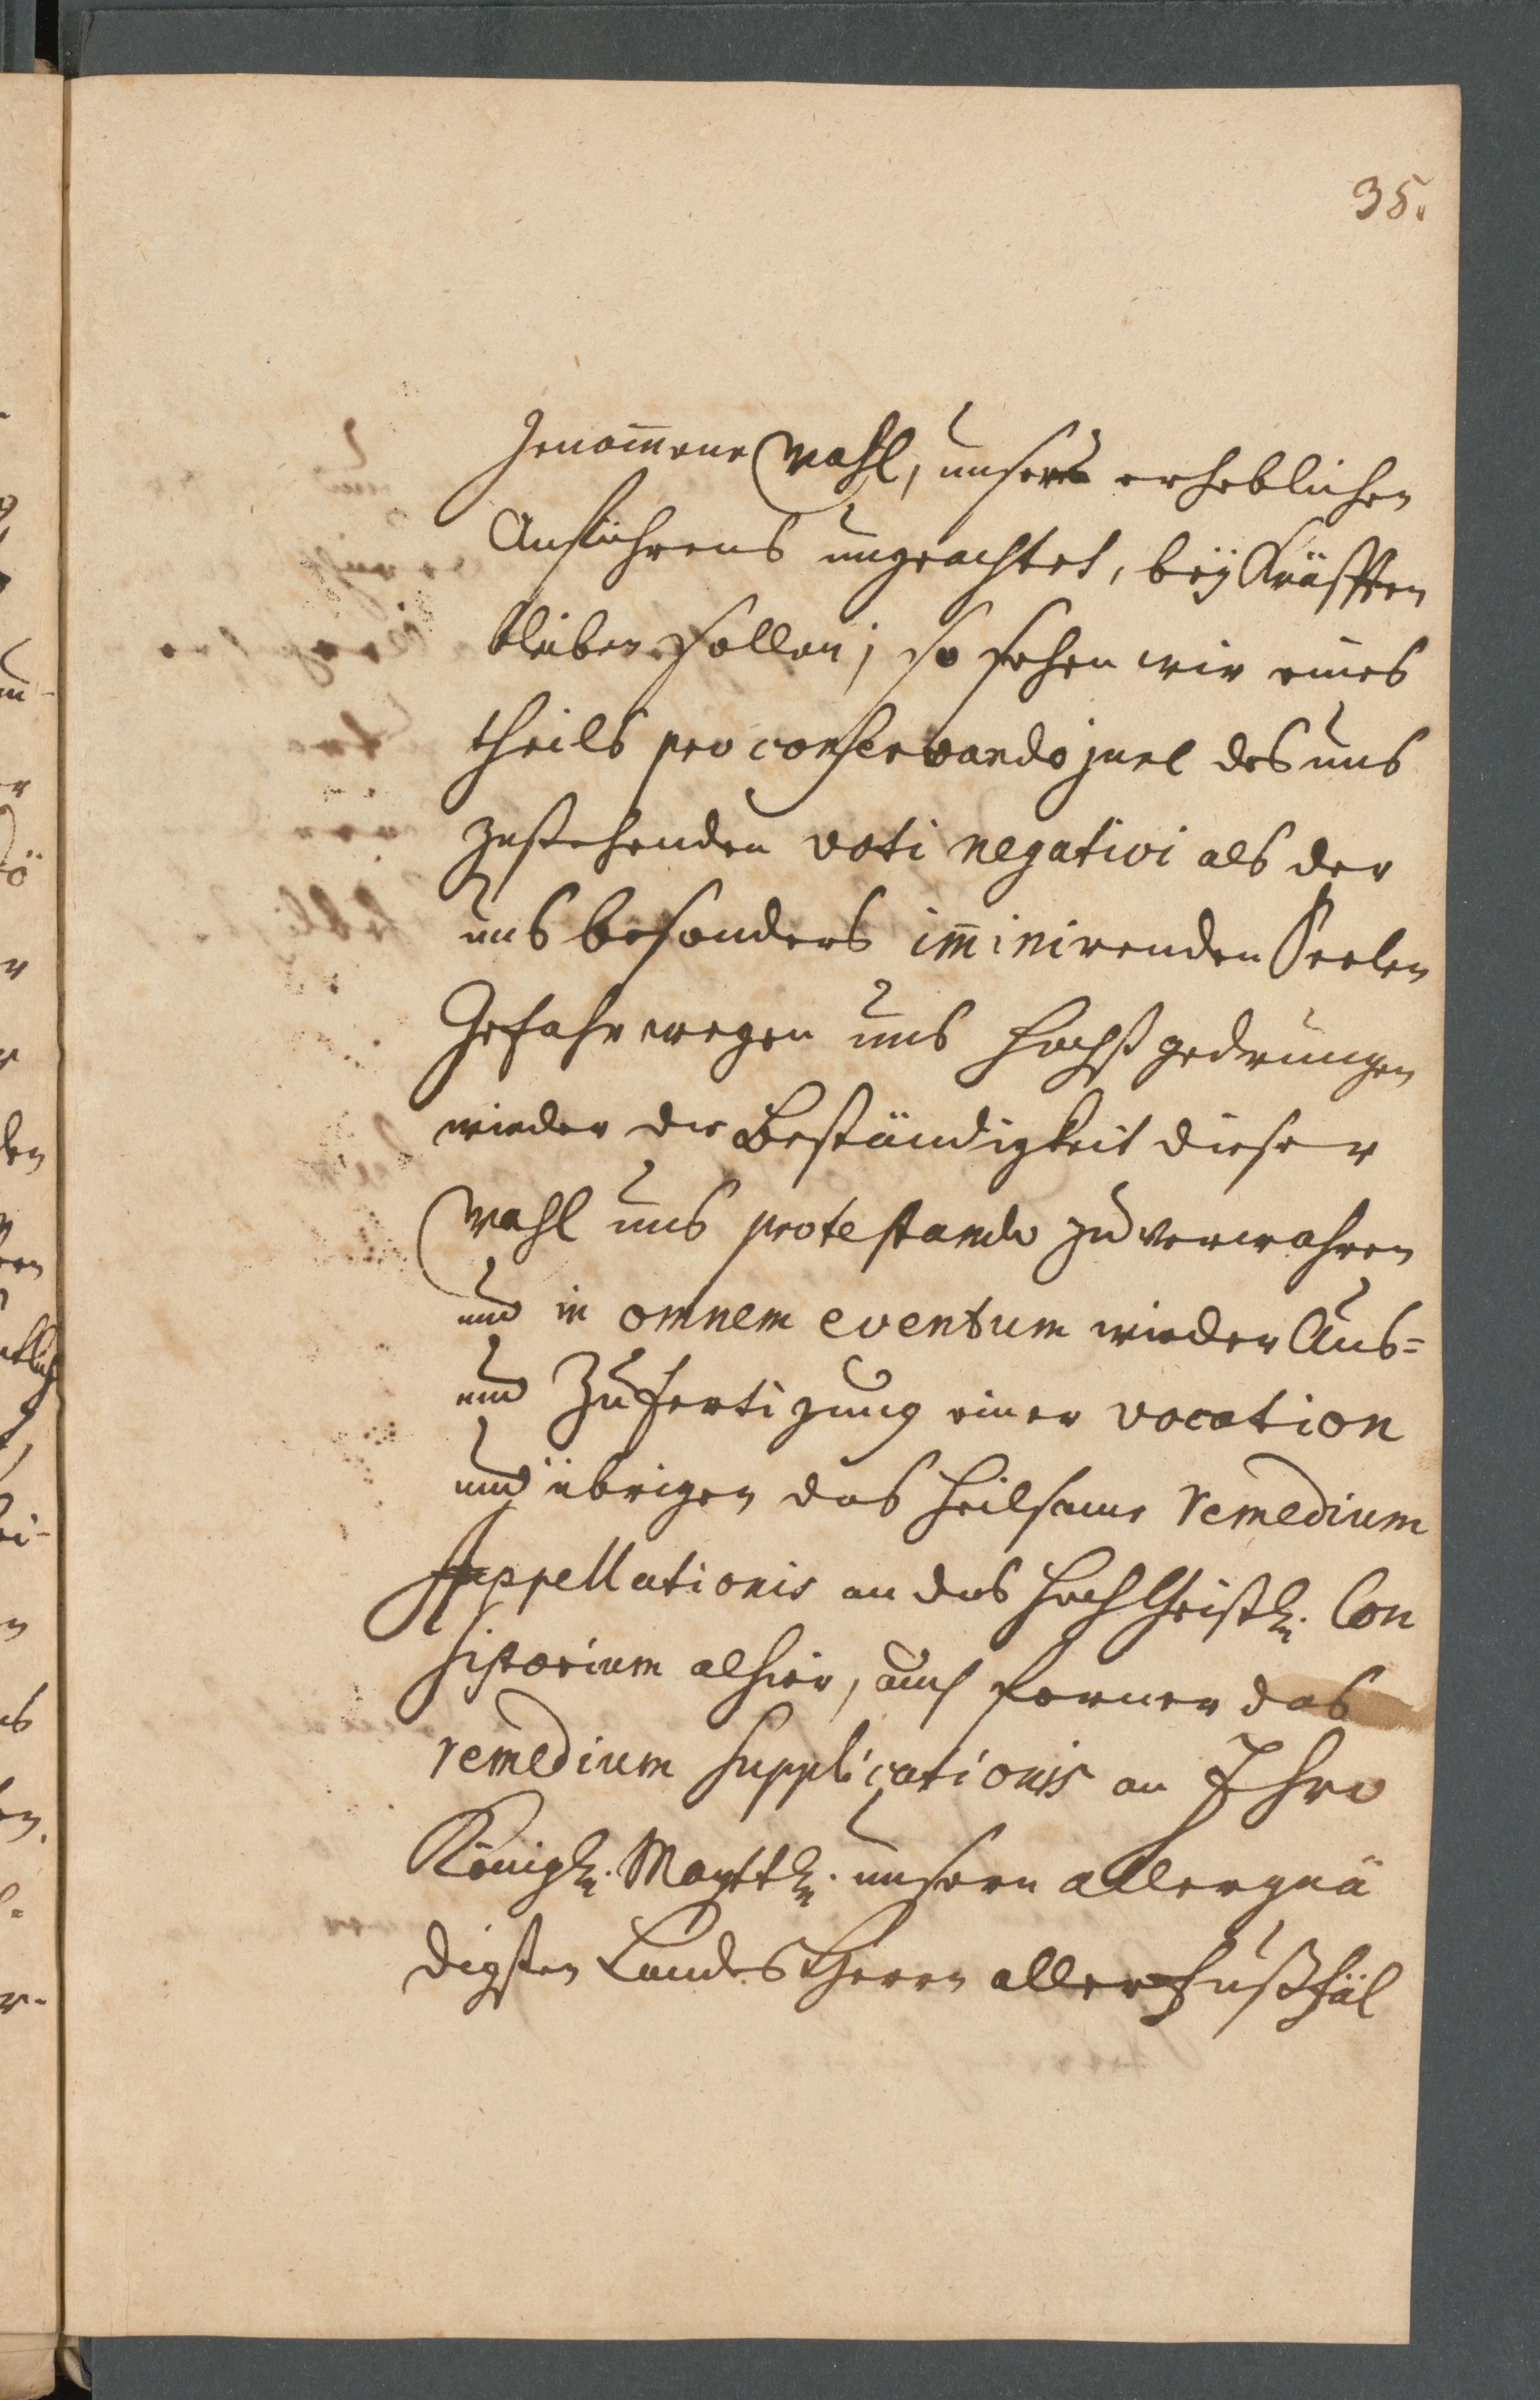 35.
genom̄ene Wahl, unsers erheblichen
Anführens ungeachtet, beÿ Kräfften
bleiben sollen; so sehen wir eines
theils pro conservando jure des uns
zustehenden voti negativi als der
uns besonders im̄inirenden Seelen
Gefahr wegen uns höchst gedrungen
wieder die Beständigkeit dieser
Wahl uns protestando zu verwahren
und in omnem eventum wieder Aus=
und Zufertigung einer vocation
und übrigen das heilsame remedium
Appellationis an das hochlöbl. Con
sistorium alhier, auch ferner das
remedium supplicationis an Ihro
Königl. Maytt. unsern allergnä
digsten Landes Herrn allerfußfäl